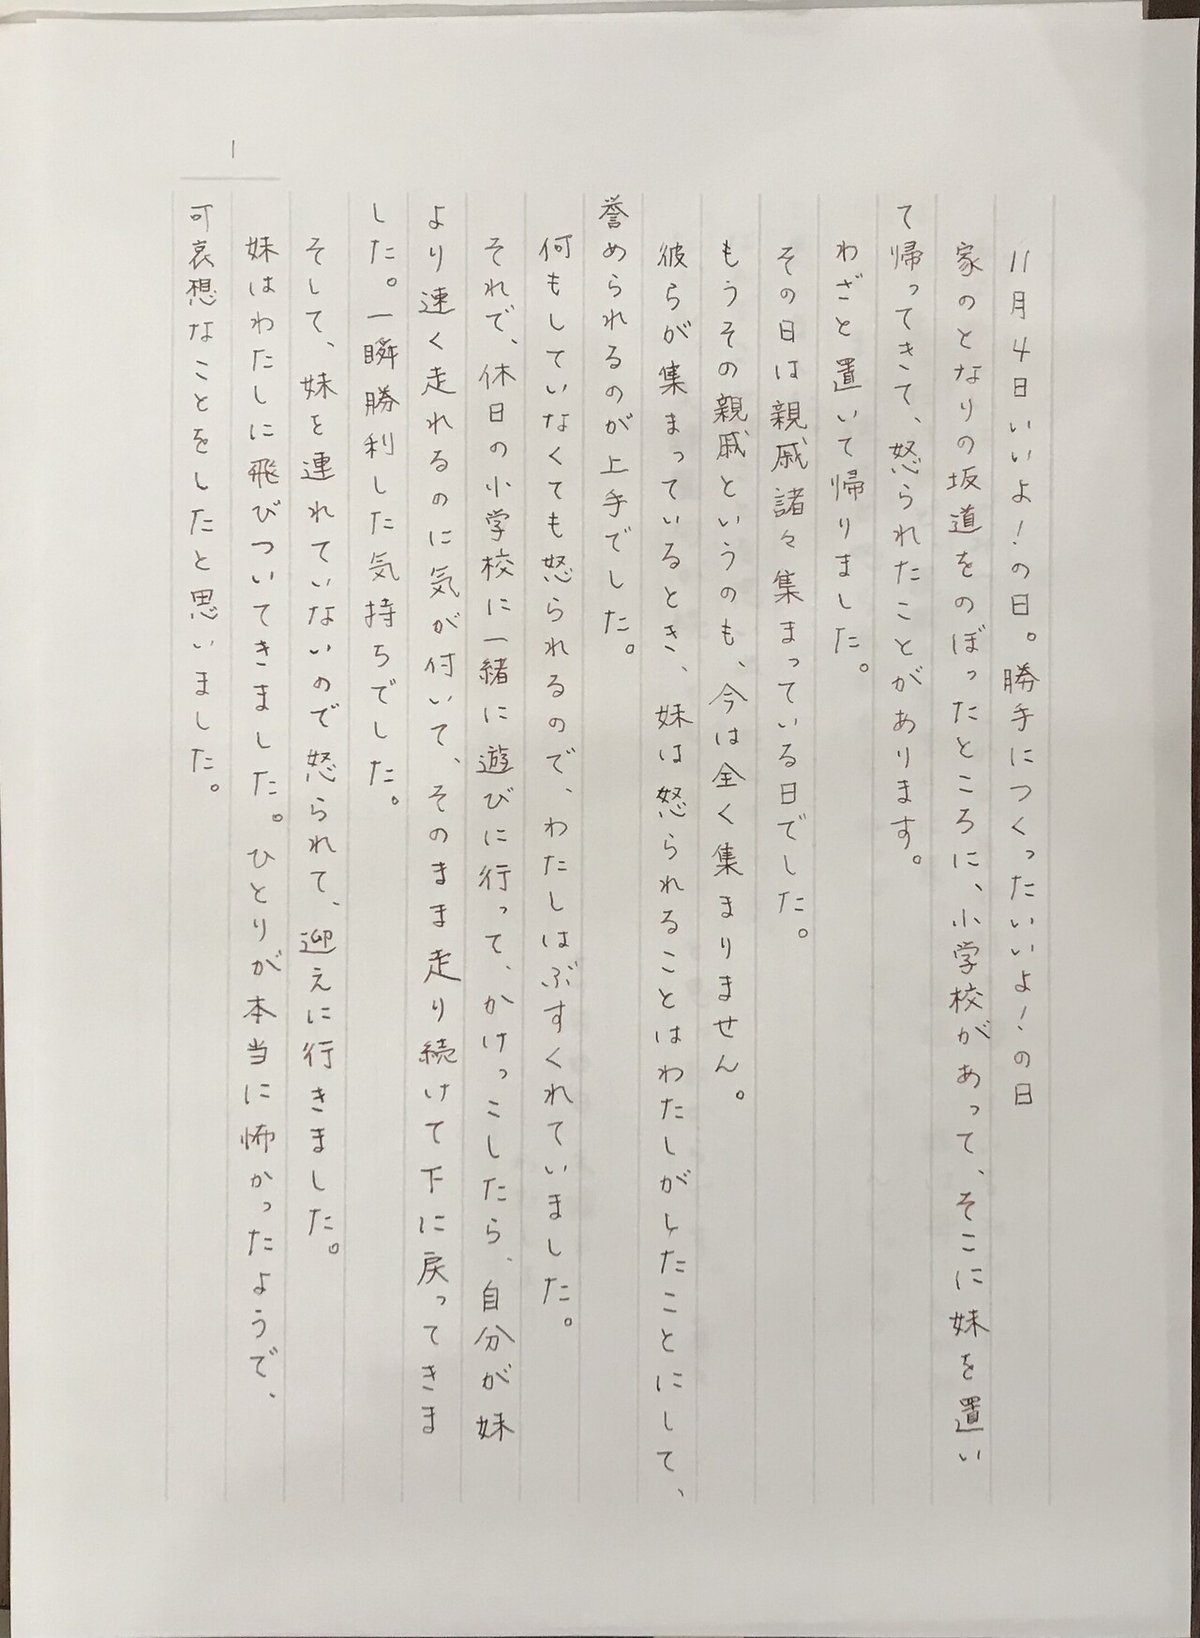 11月4日いいよ!の日。勝手につくったいいよ!の日
家のとなりの坂道をのぼったところに、小学校があって、そこに妹を置い
て帰ってきて、怒られたことがあります。
わざと置いて帰りました。
その日は親戚諸々集まっている日でした。
もうその親戚というのも、今は全く集まりません。
彼らが集まっているとき、妹は怒られることはわたしがしたことにして、
誉められるのが上手でした。
何もしていなくても怒られるので、わたしはぶすくれていました。
それで、休日の小学校に一緒に遊びに行って、かけっこしたら、自分が妹
より速く走れるのに気が付いて、そのまま走り続けて下に戻ってきま
した。一瞬勝利した気持ちでした。
そして、妹を連れていないので怒られて、迎えに行きました。
妹はわたしに飛びついてきました。ひとりが本当に怖かったようで、
可哀想なことをしたと思いました。
1